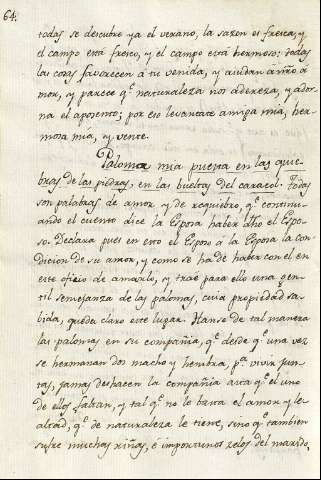 64.
todas se descubre ya el verano, la sazon es fresca, y
el campo está fresco, y el campo está hermoso: todas
las cosas favorecen á tu venida, y aiudan á ñro a-
mor, y parece q.e naturaleza nos adereza, y ador-
na el aposento; por eso levantate amiga mia, her-
mosa mia, y vente.
Paloma mia puesta en las que-
bras de las piedras, en las bueltas del caracol. Todas
son palabras de amor y de requiebro, q.e continu-
ando el cuento dice la Esposa haber dho el Espo-
so. Declara pues en esto el Esposo á la Esposa la con-
dicion de su amor, y como se ha de haber con el en
este oficio de amarlo, y trae para ello una gen-
til semejanza de las palomas, cuia propiedad sa-
bida, queda claro este lugar. Hanse de tal manera
las palomas en su compañia, q.e desde q.e una vez
se hermanan dos macho y hembra, p.a vivir jun-
tas, jamas deshacen la compañia asta q.e el uno
de ellos faltan, y tal q.e no le basta el amor y le-
altad, q.e de naturaleza le tiene, sino q.e tambien
sufre muchas riñas, é importunos zelos del marido,